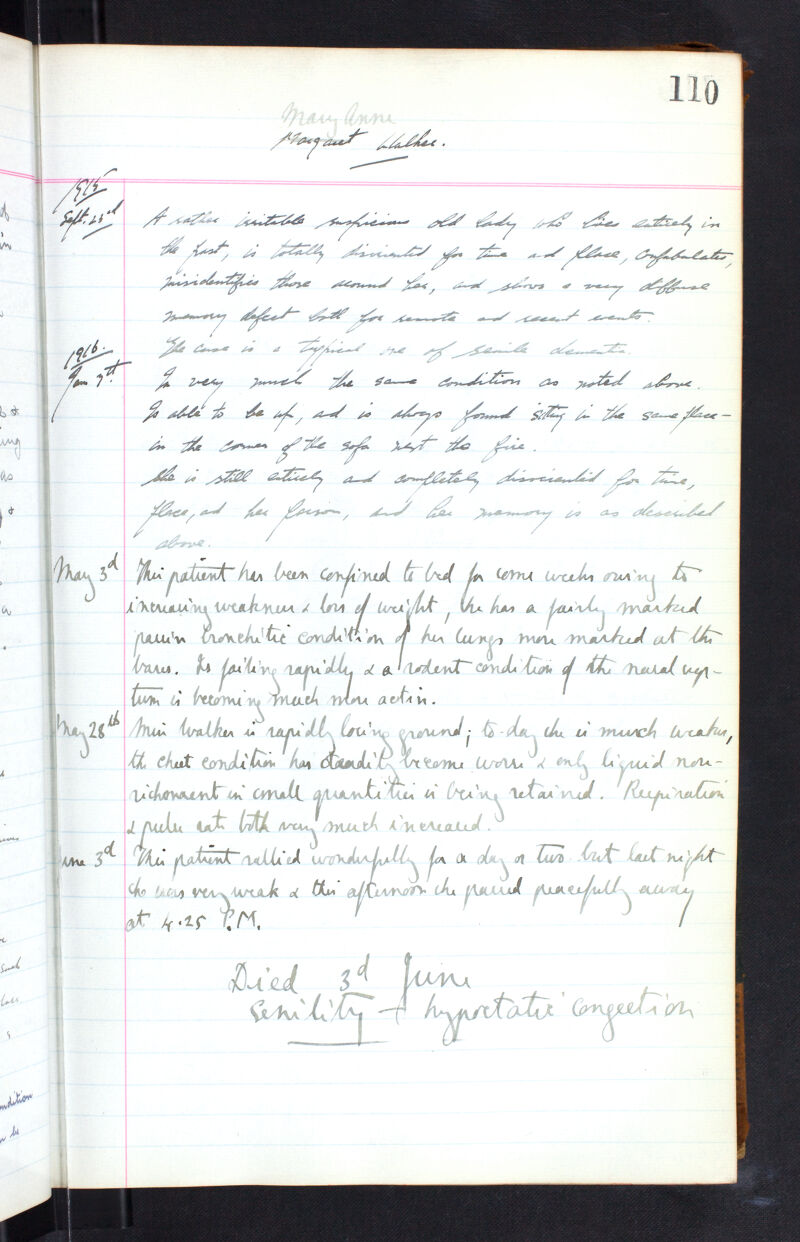 110
Mary Anne
Margaret Walker.
1915
Sept. 23rd A rather irritable suspicious old lady who lives entirely in
the past, is totally disoriented for time and place, confabulates,
misidentifies those around her, and shows a very diffuse
memory defect both for remote and recent events.
The case is a typical one of senile dementia.
1916.
Jan 7th. In very much the same condition as noted above.
Is able to be up, and is always found sitting in the same place -
in the corner of the sofa next the fire.
She is still entirely and completely disoriented for time,
place, and her person, and her memory is as described
above.
May 3d This patient has been confined to bed for some weeks owing to
increasing weakness & loss of weight, she has a fairly marked
bronchitic condition of her lungs more marked at the
bases. Is failing rapidly & a rodent condition of the nasal sep-
tum is becoming much more active.
May 28th Miss Walker is rapidly losing ground; to-day she is much weaker,
the chest condition has steadily become worse & only liquid nou-
rishment in small quantities is being retained. Respiration
& pulse rate both very much increased.
June 3d This patient rallied wonderfully for a day or two but last night
she was very weak & this afternoon she passed peacefully away
at 4.25 P.M.
Died 3d June
Senility + hypostatic congestion